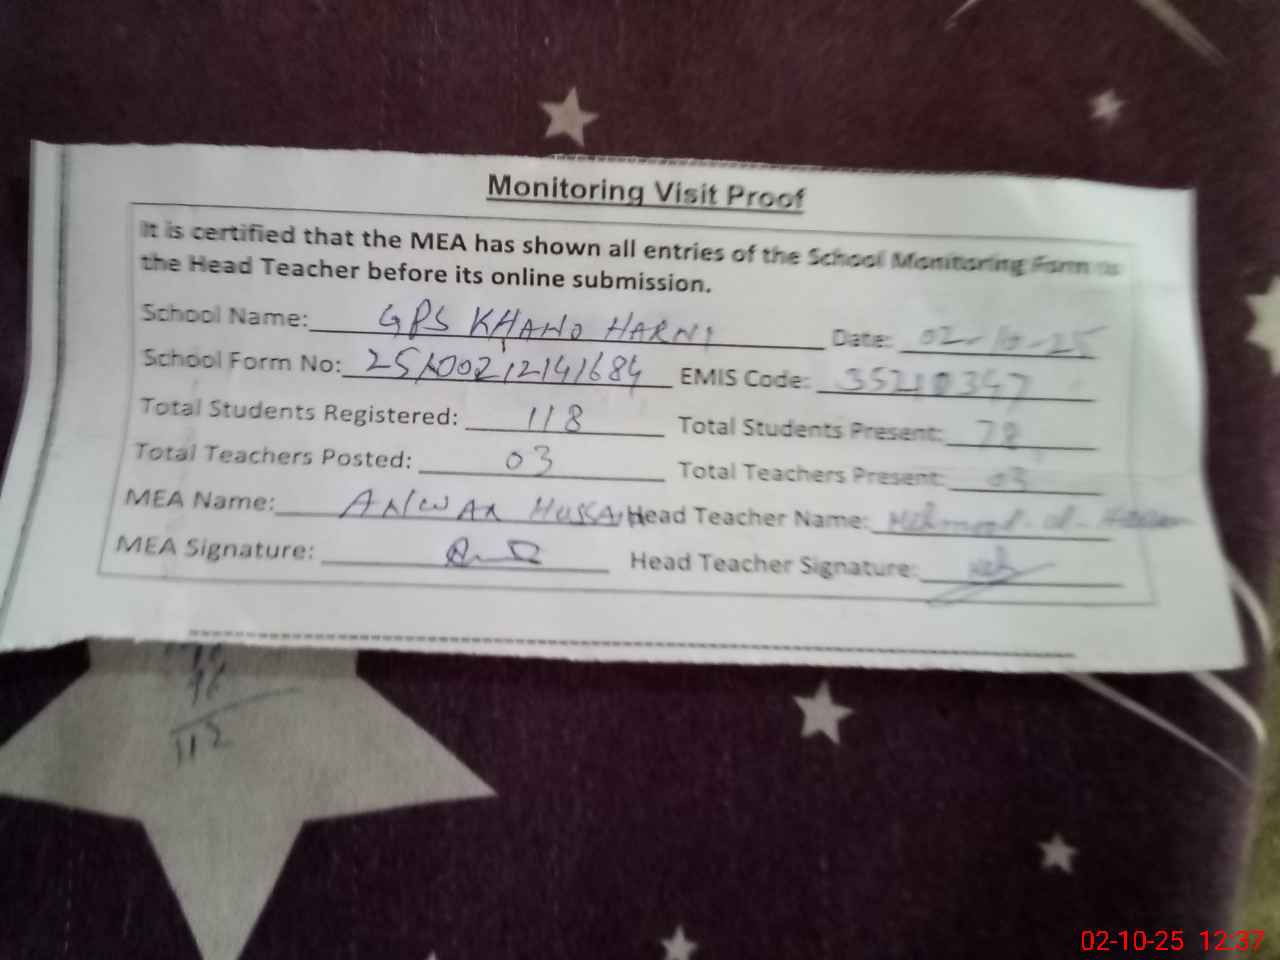 Monitoring Visit Proof
It is certified that the MEA has shown all entries of the School Monitoring Form to
the Head Teacher before its online submission.
School Name: GPS KHANO HARNI Date: 02-10-25
School Form No: EMIS Code: 35210347
Total Students Registered: 118 Total Students Present: 78
Total Teachers Posted: 03 Total Teachers Present: 03
MEA Name: ANWAR HUSSAIN Head Teacher Name:
MEA Signature: Head Teacher Signature:
112
02-10-25 12:37